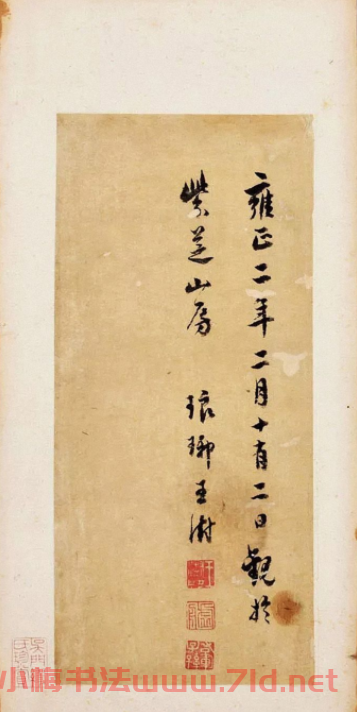 雍正二年二月十有二日觀於
紫芝山房 琅琊王澍
小梅书法www.7ld.net